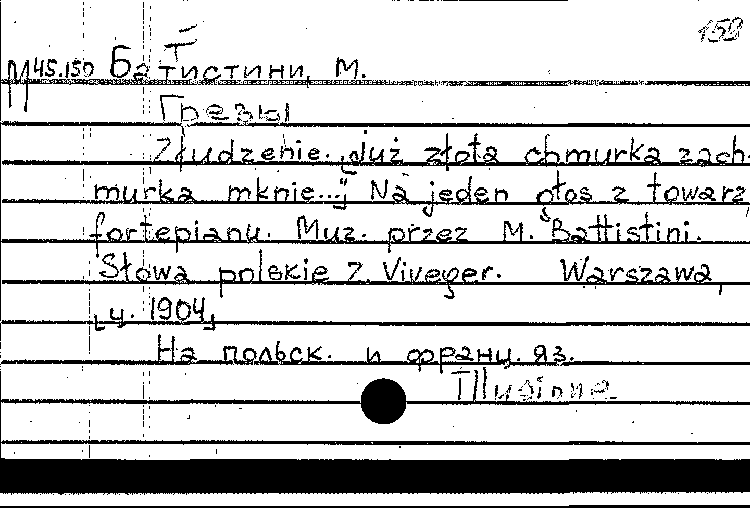 159
Т
М 45.150 Батистини, М.
Грезы
Złudzenie. „Już złota chmurka zach-
murka mknie...” Na jeden głos z towarz.
fortepianu. Muz. przez M. Battistini.
Słowa polskie Z. Viveger. Warszawa,
[ц. 1904]
На польск. и франц. яз.
Illusione